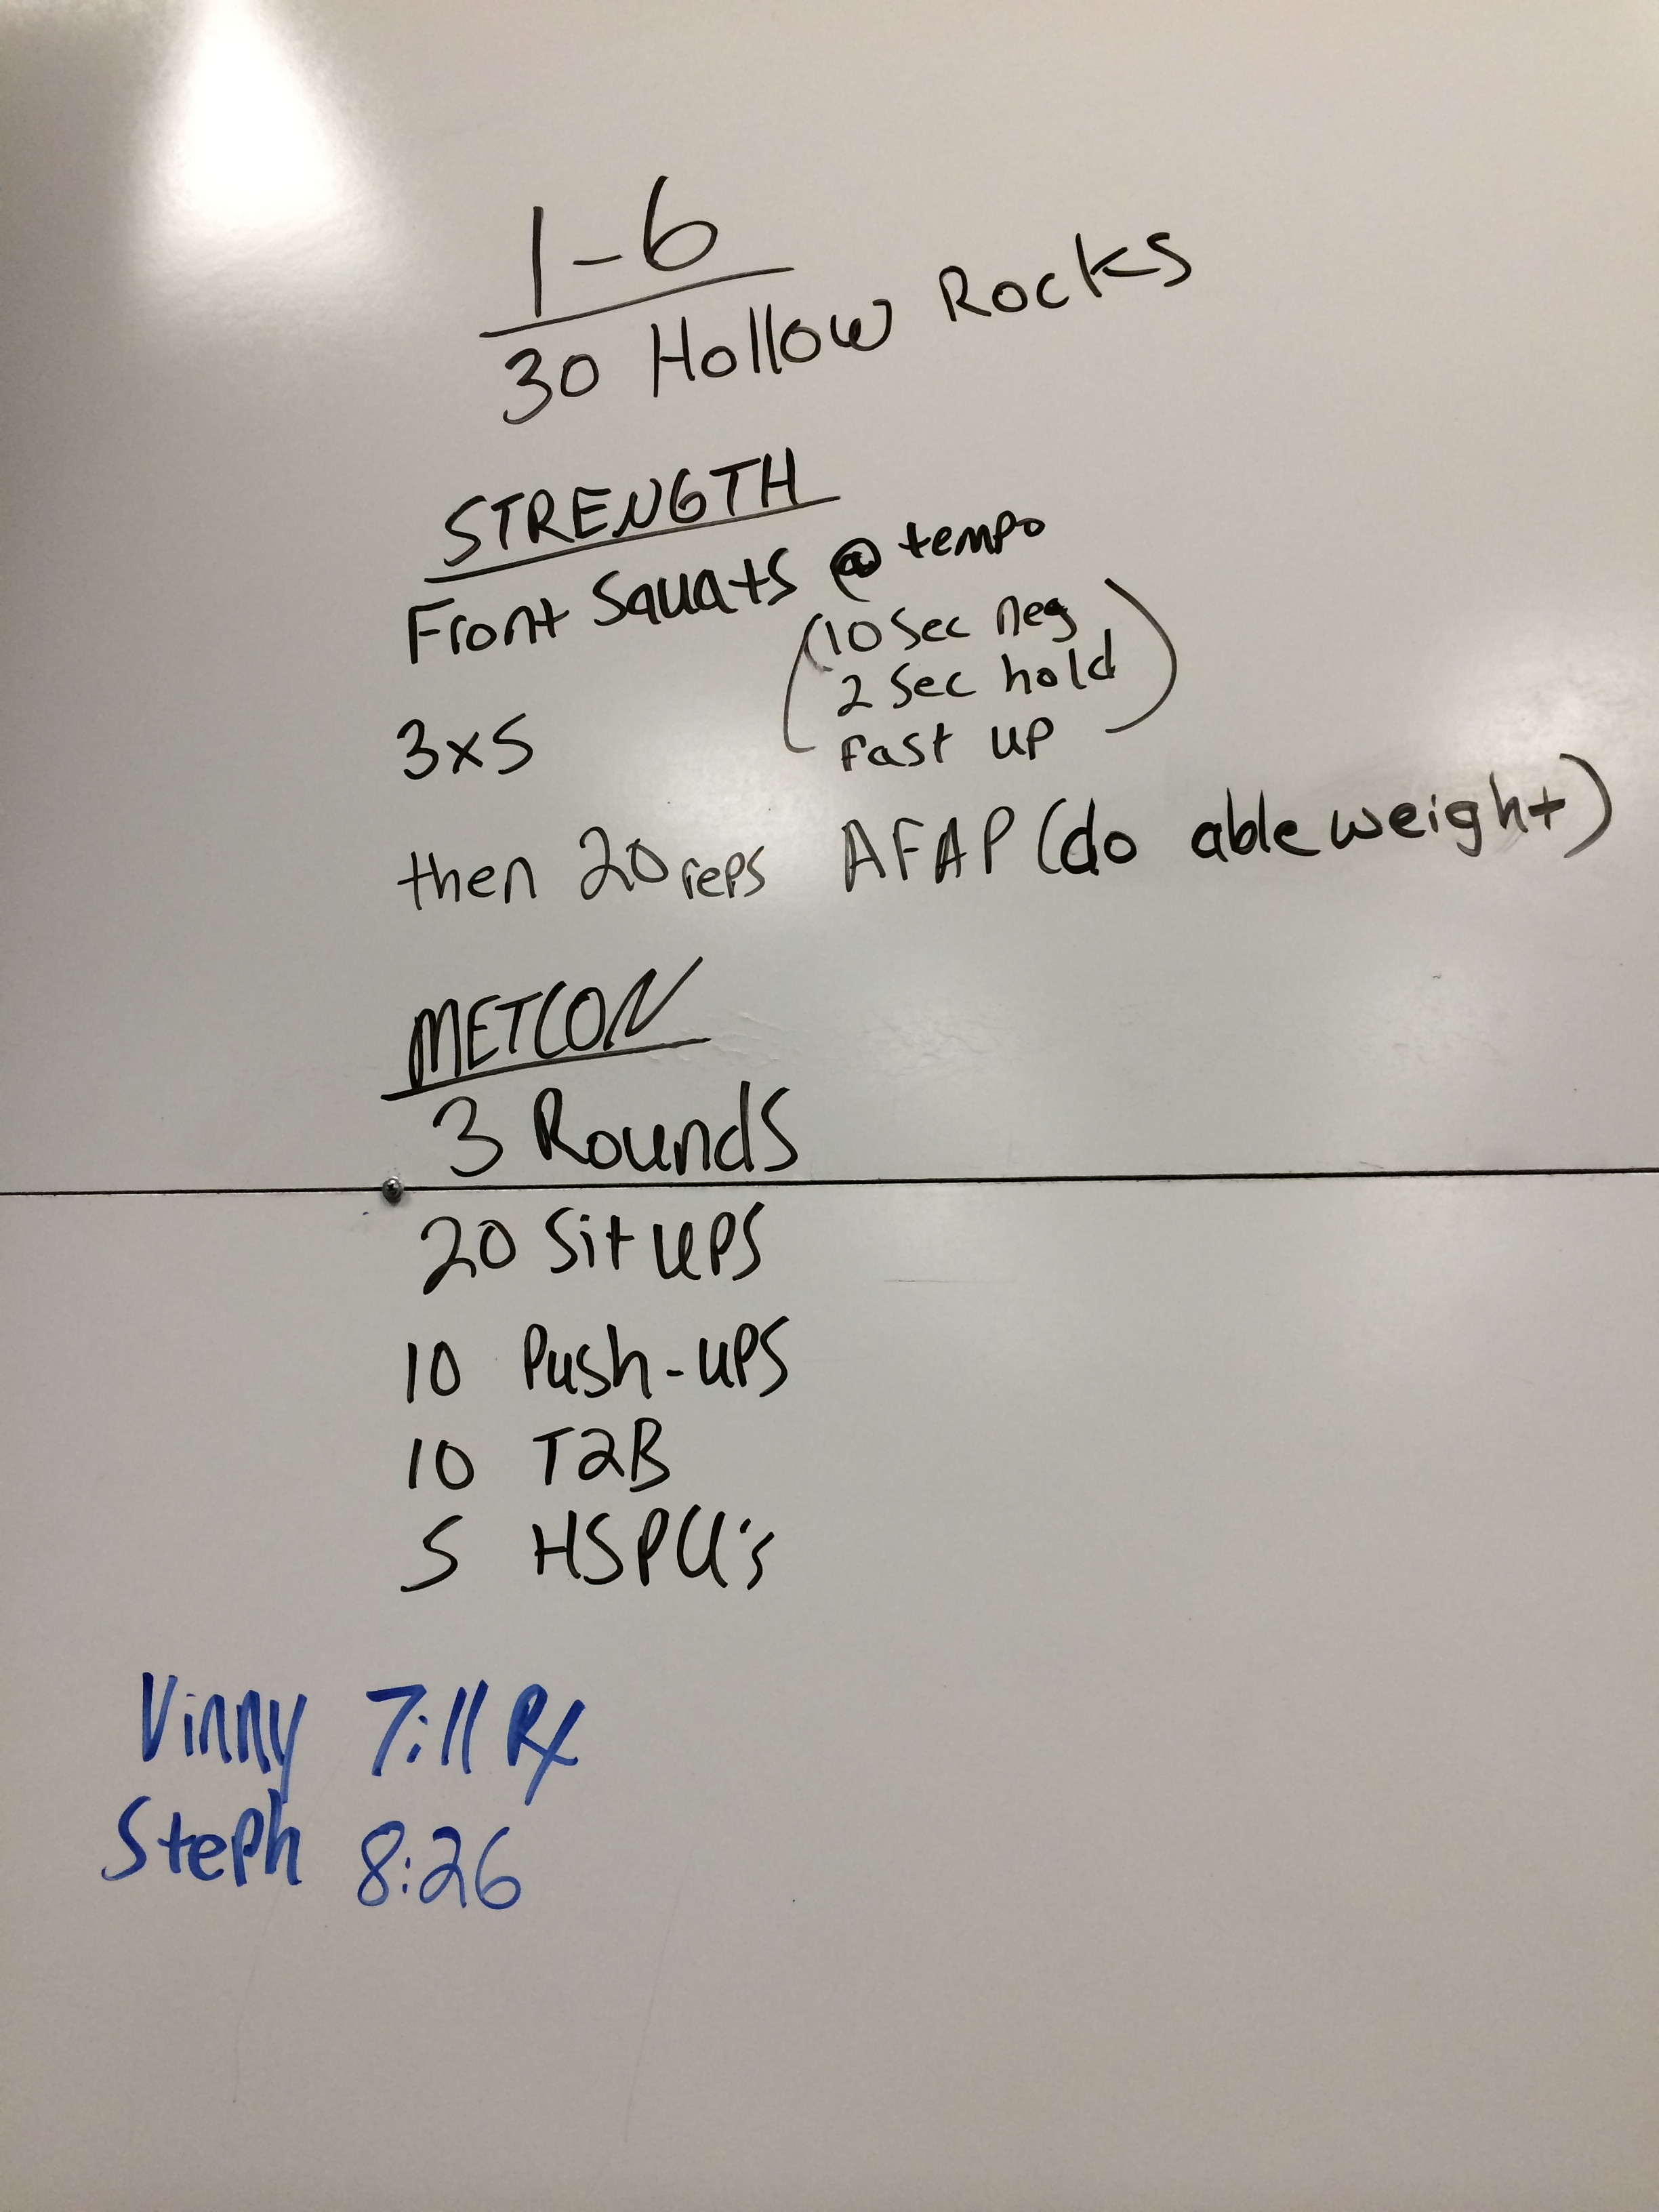 1-6
30 Hollow Rocks
STRENGTH
Front Squats @ tempo
(10 Sec neg
2 Sec hold
fast up)
3x5
then 20 reps AFAP (do able weight)
METCON
3 Rounds
20 Sit ups
10 Push-ups
10 T2B
5 HSPU's
Vinny 7:11 Rx
Steph 8:26